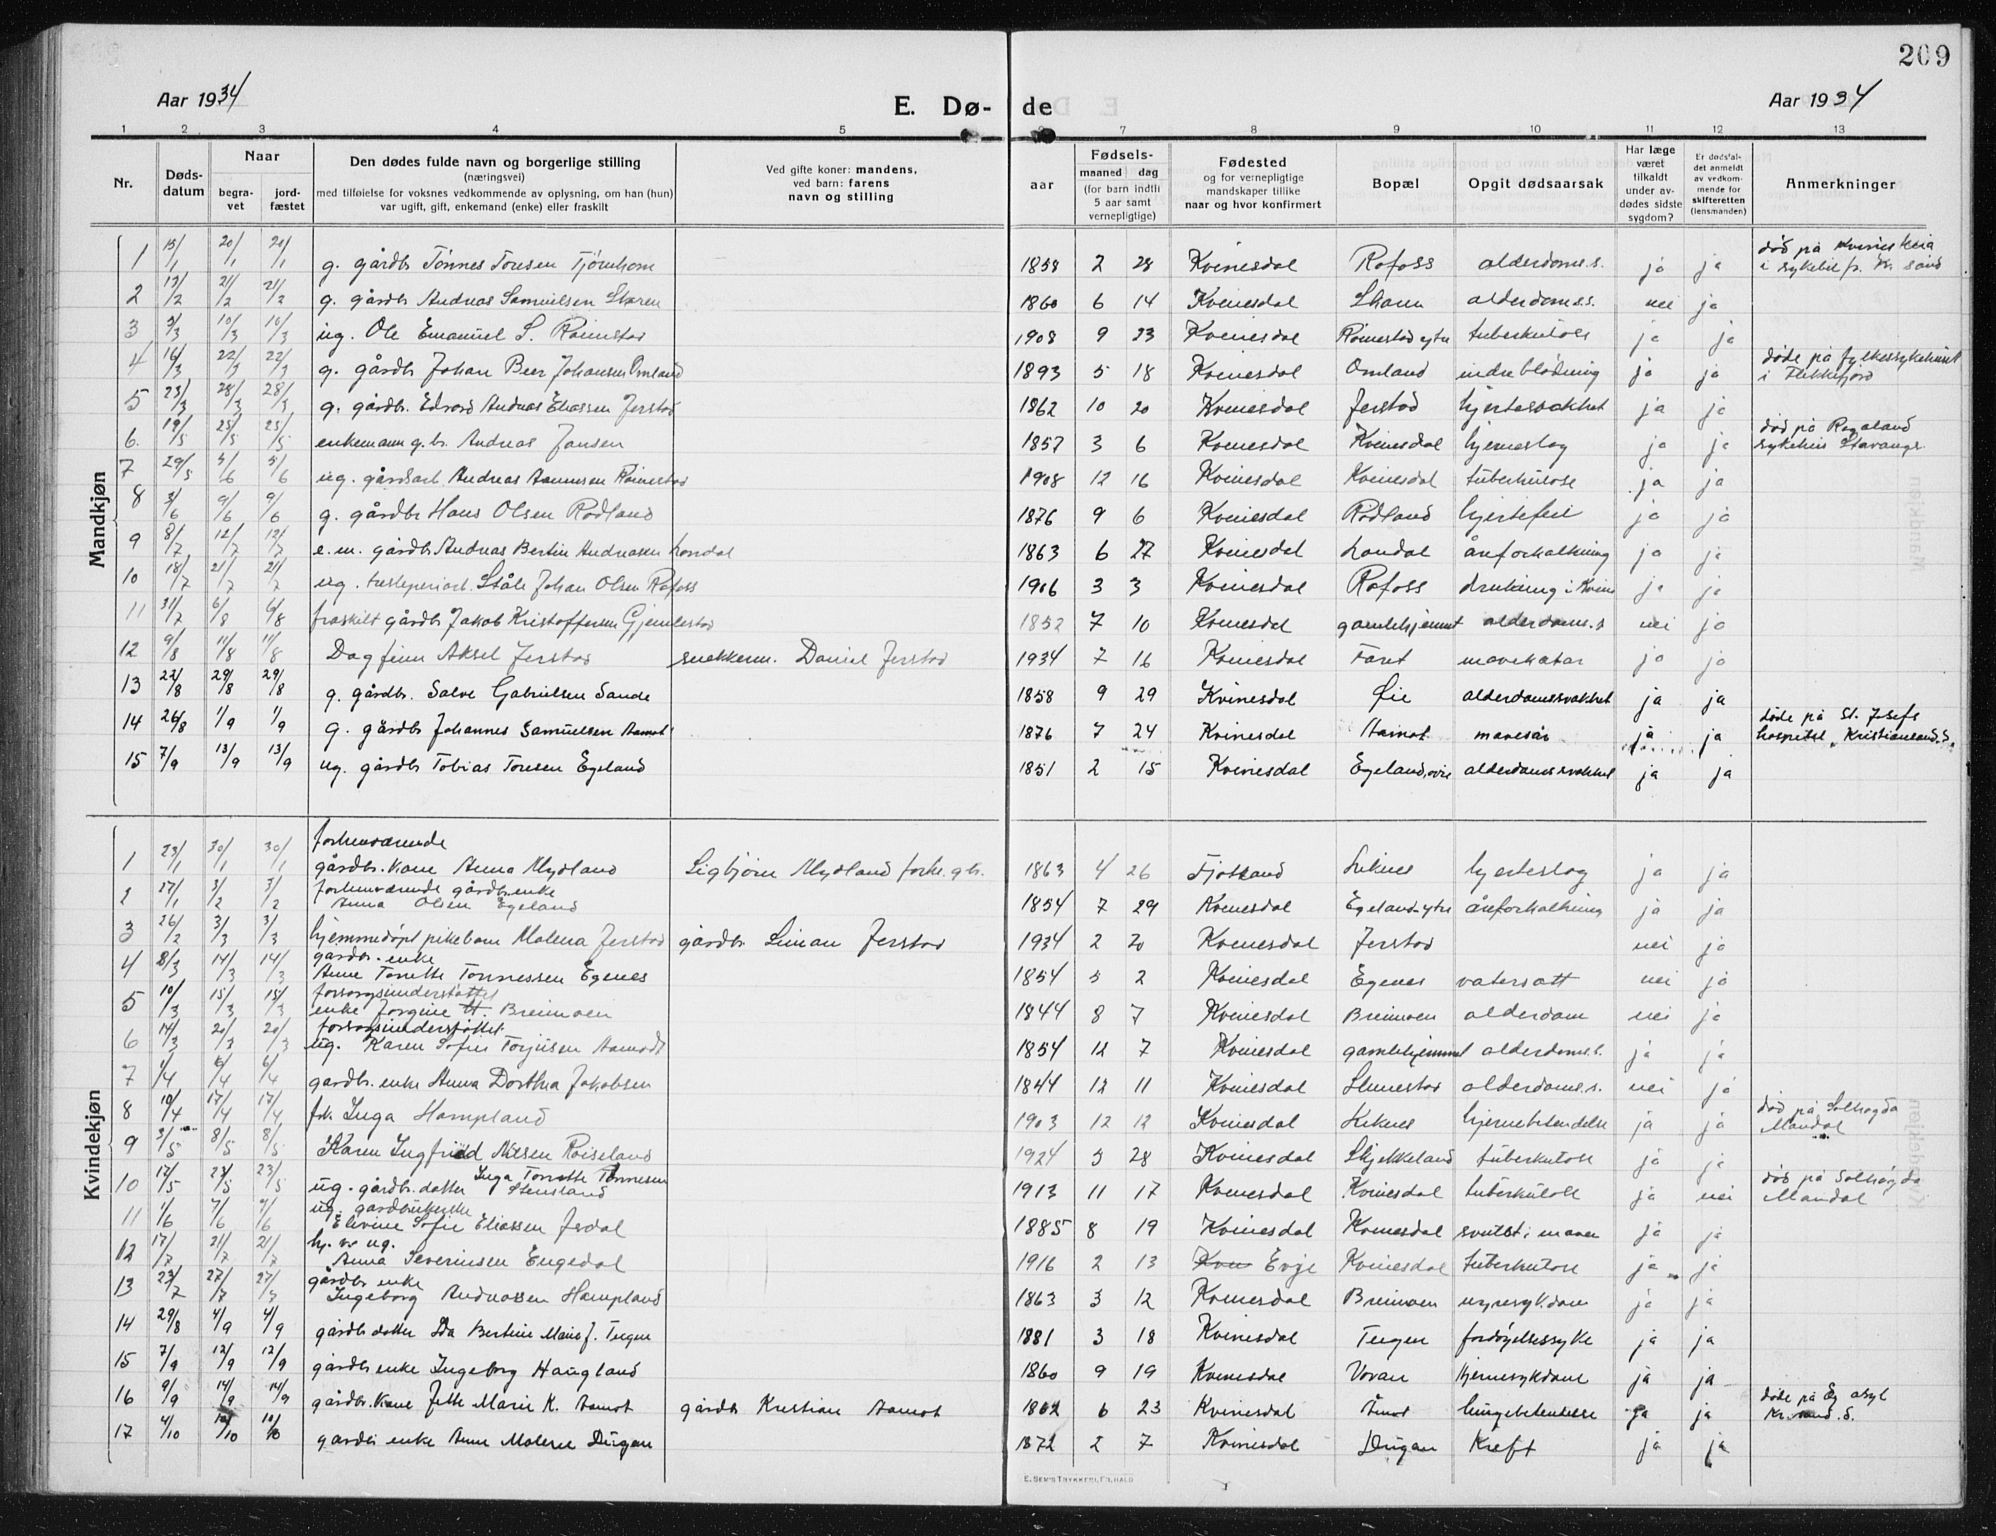 209
Aar 1934 E. Dø- de Aar 1934
1 2 3 4 5 7 8 9 10 11 12 13
Nr. Døds-datum Naar begra-vet jord-fæstet Den dødes fulde navn og borgerlige stilling (næringsvei) med tilføielse for voksnes vedkommende av oplysning, om han (hun) var ugift, gift, enkemand (enke) eller fraskilt Ved gifte koner: mandens, ved barn: farens navn og stilling aar Fødsels- maaned dag (for barn indtil 5 aar samt vernepligtige) Fødested og for vernepligtige mandskaper tillike naar og hvor konfirmert Bopæl Opgit dødsaarsak Har læge været tilkaldt under av-dødes sidste sygdom? Er dødsfal-det anmeldt av vedkom-mende for skifteretten (lensmanden) Anmerkninger
Mandkjøn
1 20/1 20/1 g. gårdbr Tønnes Tonesen Tjørnhom 1858 2 28 Kvinesdal Rafoss alderdoms.s. ja ja død på Kvinesheia i sykebil fr. Kr sand
2 13/2 21/2 21/2 g. gårdbr Andreas Samuelsen 1860 6 14 Kvinesdal alderdoms.s. nei ja
3 3/3 10/3 10/3 ug. Ole Emanuel S. Røinestad 1908 9 23 Kvinesdal Røinestad ytre tuberkulose ja ja
4 16/3 22/3 22/3 g. gårdbr Johan Beer Johansen Omland 1893 5 18 Kvinesdal Omland indre blødning ja ja døde på fylkessykehuset i Flekkefjord
5 23/3 28/3 28/3 g. gårdbr. Edvard Andreas Eliassen Jerstad 1862 10 20 Kvinesdal Jerstad hjertesvakhet ja ja
6. 19/5 25/5 25/5 enkemann g.br. Andreas Jansen 1857 3 6 Kvinesdal Kvinesdal hjerneslag ja ja død på Rogaland sykehus Stavanger
7 29/5 5/6 5/6 ug. gårdsarb Andreas Røinestad 1908 12 16 Kvinesdal Kvinesdal tuberkulose ja ja
8 3/6 9/6 9/6 g. gårdbr Hans Olsen Rødland 1876 9 6 Kvinesdal Rødland hjertefeil ja ja
9 8/7 12/7 12/7 e.m. gårdbr Andreas Bertin Andreasen Londal 1863 6 27 Kvinesdal Londal åreforkalkning ja ja
10 18/7 21/7 21/7 ug. Ståle Johan Olsen Rafoss 1906 3 3 Kvinesdal Rafoss drukning i Kvina ja ja
11 31/7 6/8 6/8 fraskilt gårdbr Jakob Kristoffersen Gjemlestad 1852 7 10 Kvinesdal gamlehjemmet alderdoms.s nei ja
12 9/8 11/8 11/8 Dagfinn Aksel Jerstad snekkerm. Daniel Jerstad 1934 7 16 Kvinesdal Faret mavekatar ja ja
13 22/8 29/8 29/8 g. gårdbr. Salve Gabrielsen Sande 1858 9 29 Kvinesdal Øie alderdomssvakhet ja ja
14 26/8 1/9 1/9 g. gårdbr Johannes Samuelsen Aamot 1876 7 24 Kvinesdal Aamot mavesår ja ja døde på St. Josefs hospital, Kristiansand.S.
15 7/9 13/9 13/9 ug. gårdbr Tobias Tonesen Egeland 1851 2 15 Kvinesdal Egeland, øvre alderdomssvakhet ja ja
Kvindekjøn
1 23/1 30/1 30/1 forhenværende gårdbr. kone Anna Mydland Sigbjørn Mydland forhv. gbr. 1863 4 26 Fjotland Liknes hjerteslag ja ja
2 3/2 3/2 forhenværende gårdbr.enke Anna Olsen Egeland 1854 7 29 Kvinesdal Egeland ytre åreforkalkning ja ja
3 26/2 3/3 3/3 hjemmedøpt pikebarn Malena Jerstad gårdbr. Simon Jerstad 1934 2 20 Kvinesdal Jerstad nei ja
4 8/3 14/3 14/3 gårdbr. enke Anne Tonette Tønnessen Egenes 1854 5 2 Kvinesdal Egenes vatersott nei ja
5 10/3 15/3 15/3 forsorgsunderstøttet enke Jorgine H. Breimoen 1844 8 7 Kvinesdal Breimoen alderdom nei ja
6 14/3 20/3 20/3 forsorgsunderstøttet ug. Karen Sofie Torjusen Aamodt 1854 12 7 Kvinesdal gamlehjemmet alderdoms.s. ja ja
7 1/4 6/4 6/4 gardbr. enke Anna Dorthea Jakobsen 1844 12 11 Kvinesdal Slimestad alderdoms.s. nei ja
8 10/4 17/4 17/4 frk. Inga Hompland 1903 12 12 Kvinesdal Liknes hjernebetendelse ja ja død på Solhøgda Mandal
9 3/5 8/5 8/5 Karen Ingfrid Nilsen Røiseland 1924 5 28 Kvinesdal Skjekkeland tuberkulose ja ja
10 17/5 23/5 23/5 ug. gårdbr. datter Inga Tonette Tønnesen Stensland 1913 11 17 Kvinesdal Kvinesdal tuberkulose ja nei død på Solhøgda Mandal
11 1/6 7/6 7/6 ug. gardbrukerske Elevine Sofie Eliassen Jsdal 1885 8 19 Kvinesdal Kvinesdal svulst i maven ja ja
12 17/7 21/7 21/7 ug. Anna Severinsen Engedal 1916 2 13 Evje Kvinesdal tuberkulose ja ja
13 23/7 27/7 27/7 gårdbr enke Ingeborg Andreassen Hompland 1863 3 12 Kvinesdal Breimoen nyresykdom ja ja
14 29/8 4/9 4/9 gårdbr.datter Ida Bertine Marie J. Tregen 1881 3 18 Kvinesdal fordøyelsessyke ja ja
15 7/9 12/9 12/9 gårdbr enke Ingeborg Haugland 1860 9 19 Kvinesdal Voran hjernesykdom ja ja
16 9/9 14/9 14/9 gårdbr. kone Jette Marie K. Aamot gårdbr Kristian Aamot 1862 6 23 Kvinesdal Åmot lungebetendelse ja ja døde på Eg asyl Kr.sand.S.
17 4/10 10/10 10/10 gardbr enke Anne Malene Dugan 1872 2 7 Kvinesdal Dugan Kreft ja ja
E. SEM'S TRYKKERI, FR.HALD